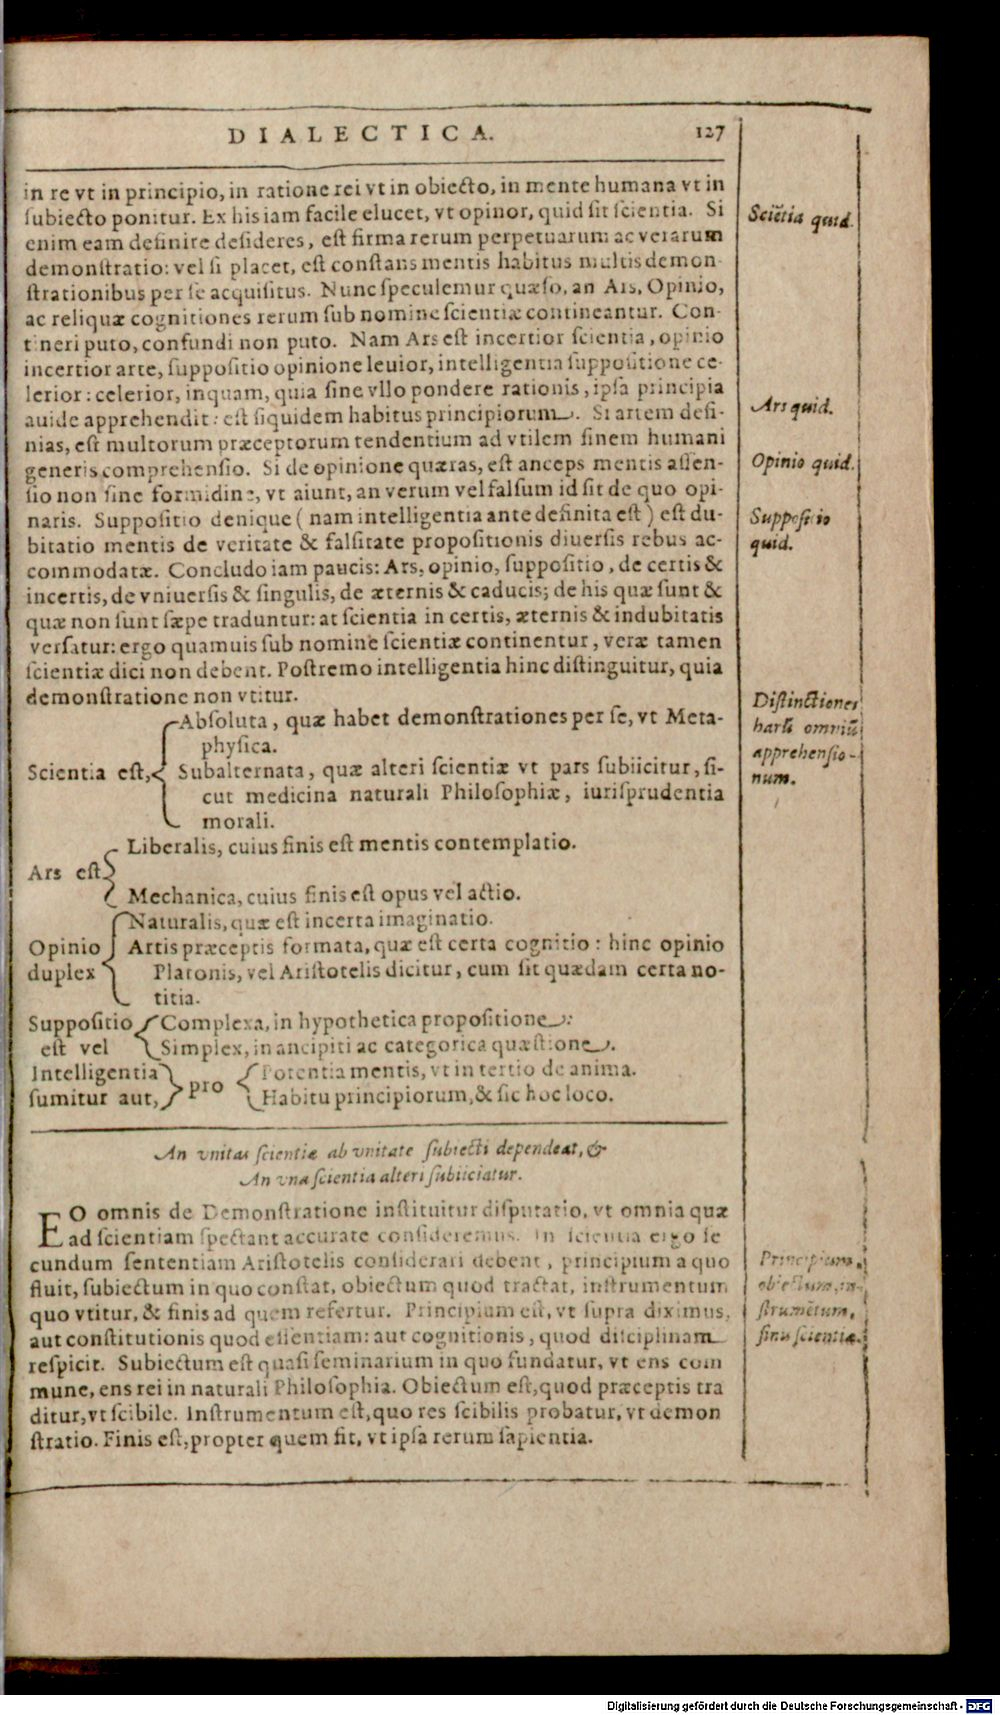 DIALECTICA. 127
in re vt in principio, in ratione rei vt in obiecto, in mente humana vt in
ſubiecto ponitur. Ex his iam facile elucet, vt opinor, quid ſit ſcientia. Si
enim eam definire deſideres, eſt firma rerum perpetuarum ac verarum
demonſtratio: vel ſi placet, eſt conſtans mentis habitus multis demon-
ſtrationibus per ſe acquiſitus. Nunc ſpeculemur quæſo, an Ars, Opinio,
ac reliquæ cognitiones rerum ſub nomine ſcientiæ contineantur. Con-
tineri puto, confundi non puto. Nam Ars eſt incertior ſcientia, opinio
incertior arte, ſuppoſitio opinione leuior, intelligentia ſuppoſitione ce-
lerior: celerior, inquam, quia ſine vllo pondere rationis, ipſa principia
auide apprehendit: eſt ſiquidem habitus principiorum. Si artem defi-
nias, eſt multorum præceptorum tendentium ad vtilem finem humani
generis comprehenſio. Si de opinione quæras, eſt anceps mentis aſſen-
ſio non ſine formidine, vt aiunt, an verum vel falſum id ſit de quo opi-
naris. Suppoſitio denique (nam intelligentia ante definita eſt) eſt du-
bitatio mentis de veritate & falſitate propoſitionis diuerſis rebus ac-
commodatæ. Concludo iam paucis: Ars, opinio, ſuppoſitio, de certis &
incertis, de vniuerſis & ſingulis, de æternis & caducis; de his quæ ſunt &
quæ non ſunt ſæpe traduntur: at ſcientia in certis, æternis & indubitatis
verſatur: ergo quamuis ſub nomine ſcientiæ continentur, veræ tamen
ſcientiæ dici non debent. Poſtremo intelligentia hinc diſtinguitur, quia
demonſtratione non vtitur.
Sciẽtia quid.
Ars quid.
Opinio quid.
Suppoſitio
quid.
Diſtinctiones
harũ omniũ
apprehenſio-
num.
Abſoluta, quæ habet demonſtrationes per ſe, vt Meta-
phyſica.
Scientia eſt, Subalternata, quæ alteri ſcientiæ vt pars ſubiicitur, ſi-
cut medicina naturali Philoſophiæ, iuriſprudentia
morali.
Liberalis, cuius finis eſt mentis contemplatio.
Ars eſt
Mechanica, cuius finis eſt opus vel actio.
Naturalis, quæ eſt incerta imaginatio.
Opinio Artis præceptis formata, quæ eſt certa cognitio: hinc opinio
duplex Platonis, vel Ariſtotelis dicitur, cum ſit quædam certa no-
titia.
Suppoſitio Complexa, in hypothetica propoſitione.
eſt vel Simplex, in ancipiti ac categorica quæſtione.
Intelligentia Potentia mentis, vt in tertio de anima.
ſumitur aut, pro Habitu principiorum, & ſic hoc loco.
An vnitas ſcientiæ ab vnitate ſubiecti dependeat, &
An vna ſcientia alteri ſubiiciatur.
EO omnis de Demonſtratione inſtituitur diſputatio, vt omnia quæ
ad ſcientiam ſpectant accurate conſideremus. In ſcientia ergo ſe
cundum ſententiam Ariſtotelis conſiderari debent, principium a quo
fluit, ſubiectum in quo conſtat, obiectum quod tractat, inſtrumentum
quo vtitur, & finis ad quem refertur. Principium eſt, vt ſupra diximus,
aut conſtitutionis quod eſſentiam: aut cognitionis, quod diſciplinam
reſpicit. Subiectum eſt quaſi ſeminarium in quo fundatur, vt ens com
mune, ens rei in naturali Philoſophia. Obiectum eſt, quod præceptis tra
ditur, vt ſcibile. Inſtrumentum eſt, quo res ſcibilis probatur, vt demon
ſtratio. Finis eſt, propter quem fit, vt ipſa rerum ſapientia.
Principium,
obiectum, in-
ſtrumẽtum,
finis ſcientiæ.
Digitalisierung gefördert durch die Deutsche Forschungsgemeinschaft - DFG